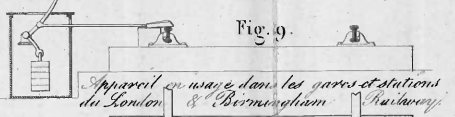 Fig. 9.
Appareil en usage dans les gares et stations
du London & Birmingham Railway.